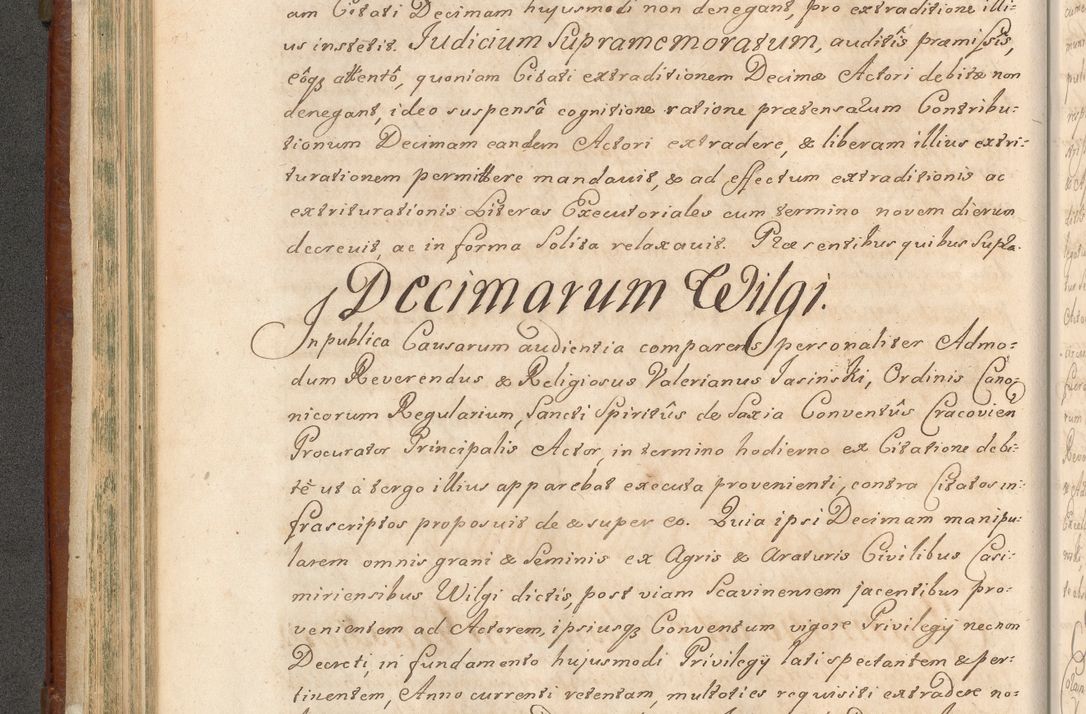 am Citati Decimam hujusmodi non denegant, pro extraditione illi:
us institit. Judicium Supramemoratum, auditîs præmissîs,
eôq3 attentô, quoniam Citati extraditionem Decimæ Actori debitæ non
denegant, ideo suspensâ cognitione ratione prætensarum Contribu:
tionum Decimam eandem Actori extradere, & liberam illius extri:
turationem permittere mandavit, & ad effectum extraditionis ac
extriturationis Literas Executoriales cum termino novem dierum
decrevit, ac in forma Solita relaxavit. Præsentibus quibus Supra.
Decimarum Wilgi.
In publica Causarum audientia comparens personaliter Admo:
dum Reverendus & Religiosus Valerianus Jasinski, Ordinis Cano:
nicorum Regularium, Sancti Spiritûs de Saxia Conventûs Cracovien
Procurator Principalis Actor, in termino hodierno ex Citatione debi:
tè ut à tergo illius apparebat executa provenienti, contra Citatos in:
frascriptos proposuit de & super eo. Quia ipsi Decimam manipu:
larem omnis grani & Seminis ex Agris & Araturis Civilibus Casi:
miriensibus Wilgi dictis, post viam Scavinensem jacentibus pro:
venientem ad Actorem, ipsiusq3 Conventum vigore Privilegij necnon
Decreti, in fundamento hujusmodi Privilegij lati spectantem & per:
tinentem, Anno currenti retentam, multoties requisiti extradere no: